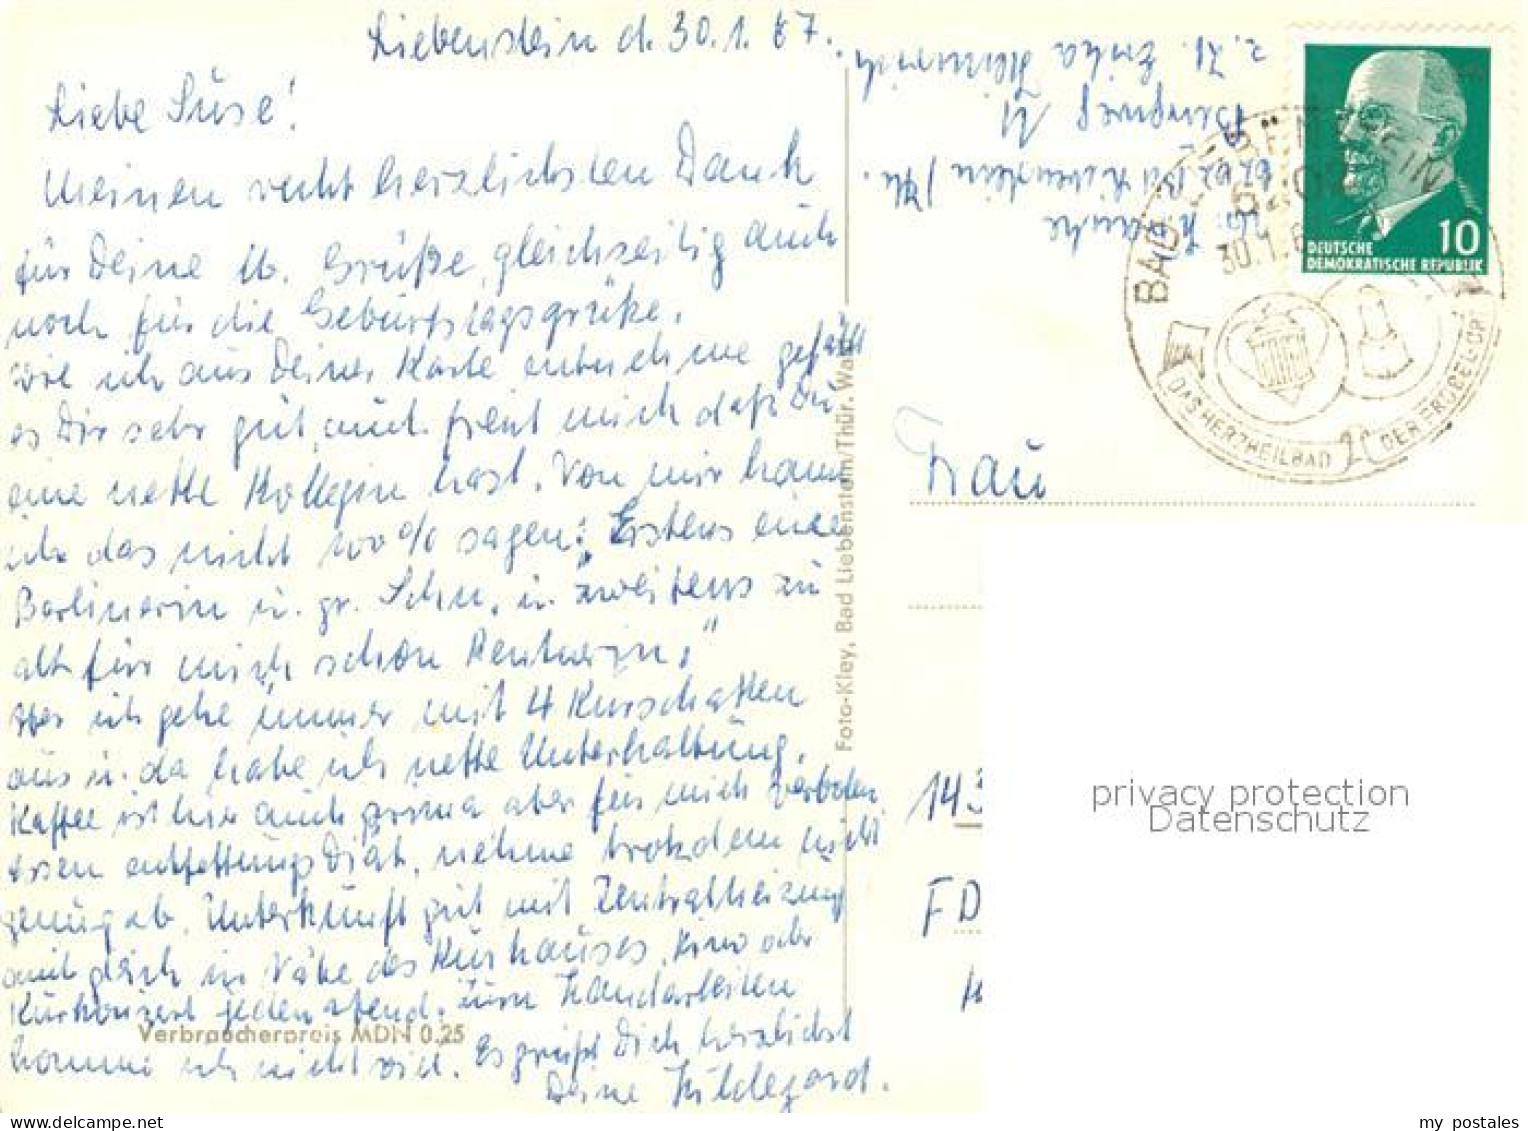 Liebenstein d. 30.1.67.
Liebe Suse!
Meinen recht herzlichsten Dank
für Deine lb. Grüße, gleichzeitig auch
noch für die Geburtstagsgrüße.
Wie ich aus Deiner Karte entnehme gefällt
es Dir sehr gut, auch freut mich daß Du
eine nette Kollegin hast. Von mir kann
ich das nicht 100% sagen: "Erstens eine
Berlinerin u. gr. Schn. u. zweitens zu
alt für mich schon Rentnerin."
Aber ich gehe immer mit 4 Kurschatten
aus u. da habe ich nette Unterhaltung.
Kaffee ist hier auch prima aber für mich verboten.
Essen entfettungs Diät, nehme trotzdem nicht
genug ab. Unterkunft gut mit Zentralheizung
und gleich in Nähe des Kurhauses. Kino oder
Kurkonzert jeden Abend. Zum Handarbeiten
komme ich nicht viel. Es grüßt Dich herzlichst
Deine Hildegard.
Verbraucherpreis MDN 0,25
Foto-Kley, Bad Liebenstein/Thür. Wa
z. Zt. Erika
6202 Bad Liebenstein / Th.
10
DEUTSCHE
DEMOKRATISCHE REPUBLIK
BAD LIEBENSTEIN
6202
30.1.6
DAS HERZHEILBAD DER FRÖBELORT
Frau
143
FD
privacy protection
Datenschutz
my postales